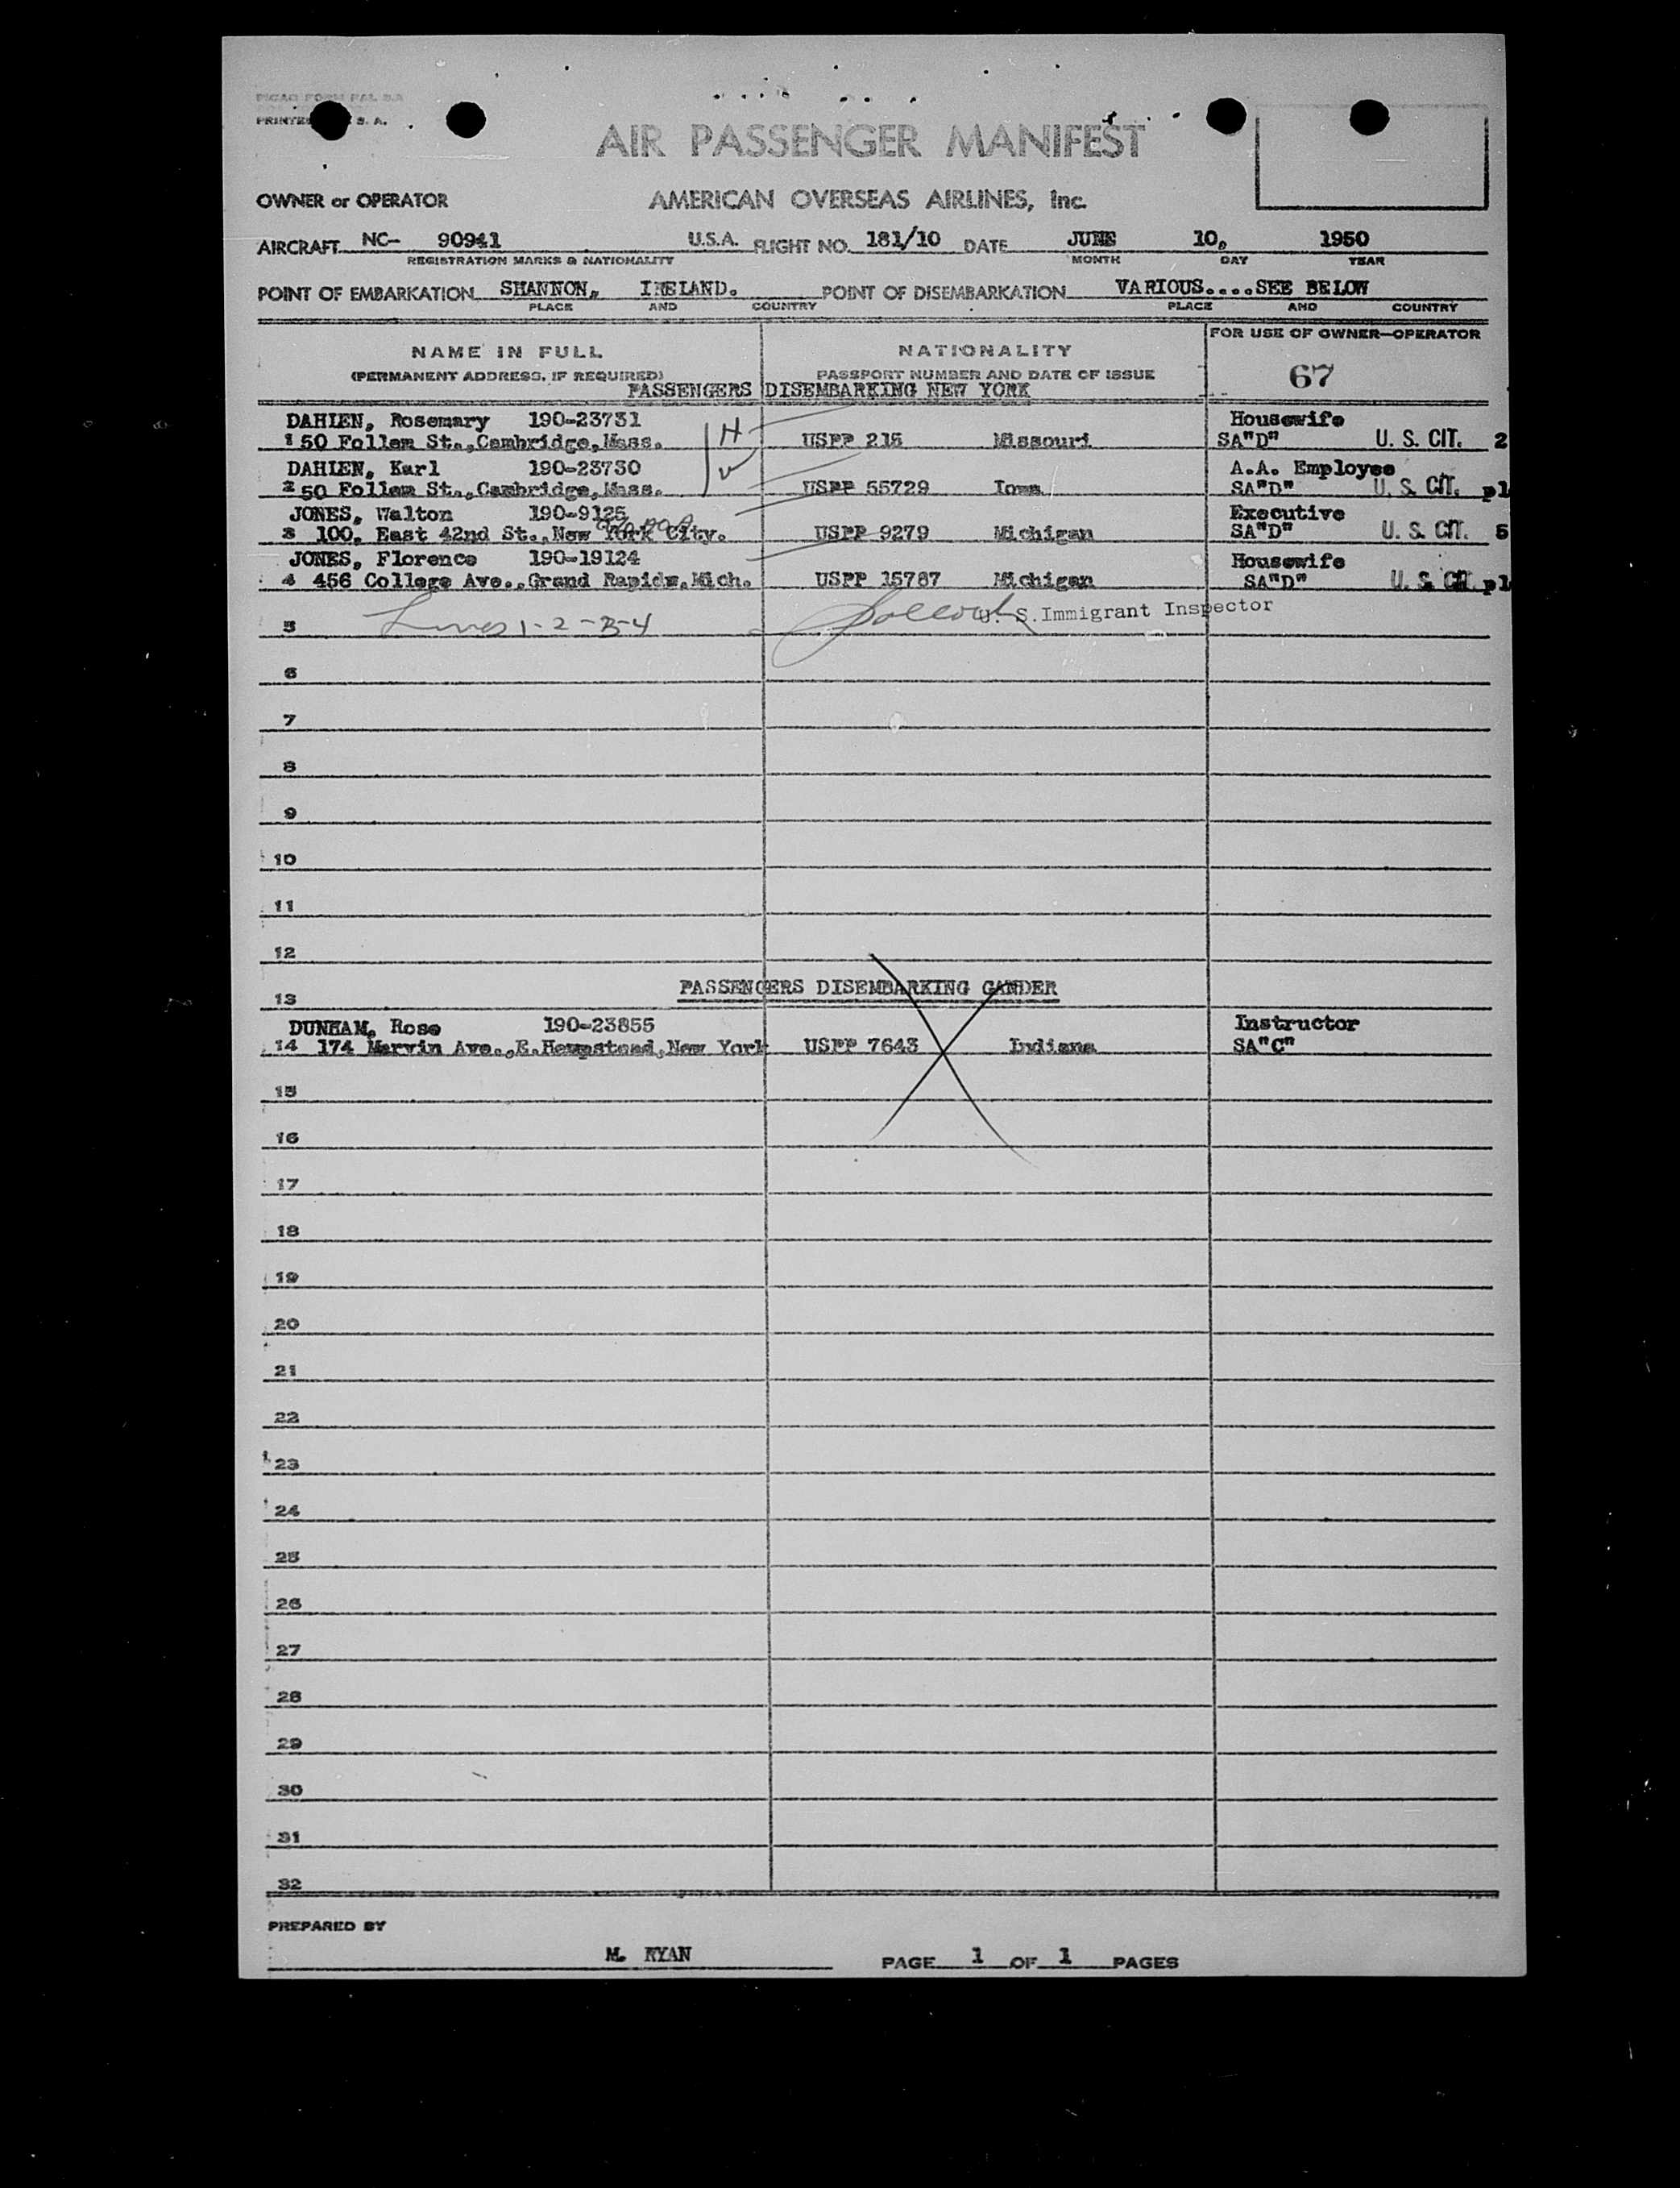 PICAO FORM PAL
PRINTED S. A.
AIR PASSENGER MANIFEST
OWNER or OPERATOR AMERICAN OVERSEAS AIRLINES, Inc.
AIRCRAFT NC- 90941 U.S.A. FLIGHT NO. 181/10 DATE JUNE 10, 1950
REGISTRATION MARKS & NATIONALITY MONTH DAY YEAR
POINT OF EMBARKATION SHANNON, IRELAND. POINT OF DISEMBARKATION VARIOUS....SEE BELOW
PLACE AND COUNTRY PLACE AND COUNTRY
NAME IN FULL NATIONALITY FOR USE OF OWNER—OPERATOR
(PERMANENT ADDRESS, IF REQUIRED) PASSPORT NUMBER AND DATE OF ISSUE 67
PASSENGERS DISEMBARKING NEW YORK
DAHLEN, Rosemary 190-23731 H Housewife
1 50 Follen St.,Cambridge,Mass. USPP 215 Missouri SA"D" U. S. CIT. 2
DAHLEN, Karl 190-23730 A.A. Employee
2 50 Follen St.,Cambridge,Mass. USPP 55729 Iowa SA"D" U. S. CIT. pl
JONES, Walton 190-9125 Executive
3 100, East 42nd St.,New York City. USPP 9279 Michigan SA"D" U. S. CIT. 5
JONES, Florence 190-19124 Housewife
4 456 College Ave.,Grand Rapids,Mich. USPP 15787 Michigan SA"D" U. S. CIT. pl
5 Lines 1-2-3-4 U. S. Immigrant Inspector
6
7
8
9
10
11
12
13 PASSENGERS DISEMBARKING GANDER
DUNHAM, Rose 190-23855 Instructor
14 174 Marvin Ave.,E.Hempstead,New York USPP 7643 Indiana SA"C"
15
16
17
18
19
20
21
22
23
24
25
26
27
28
29
30
31
32
PREPARED BY
M. RYAN PAGE 1 OF 1 PAGES